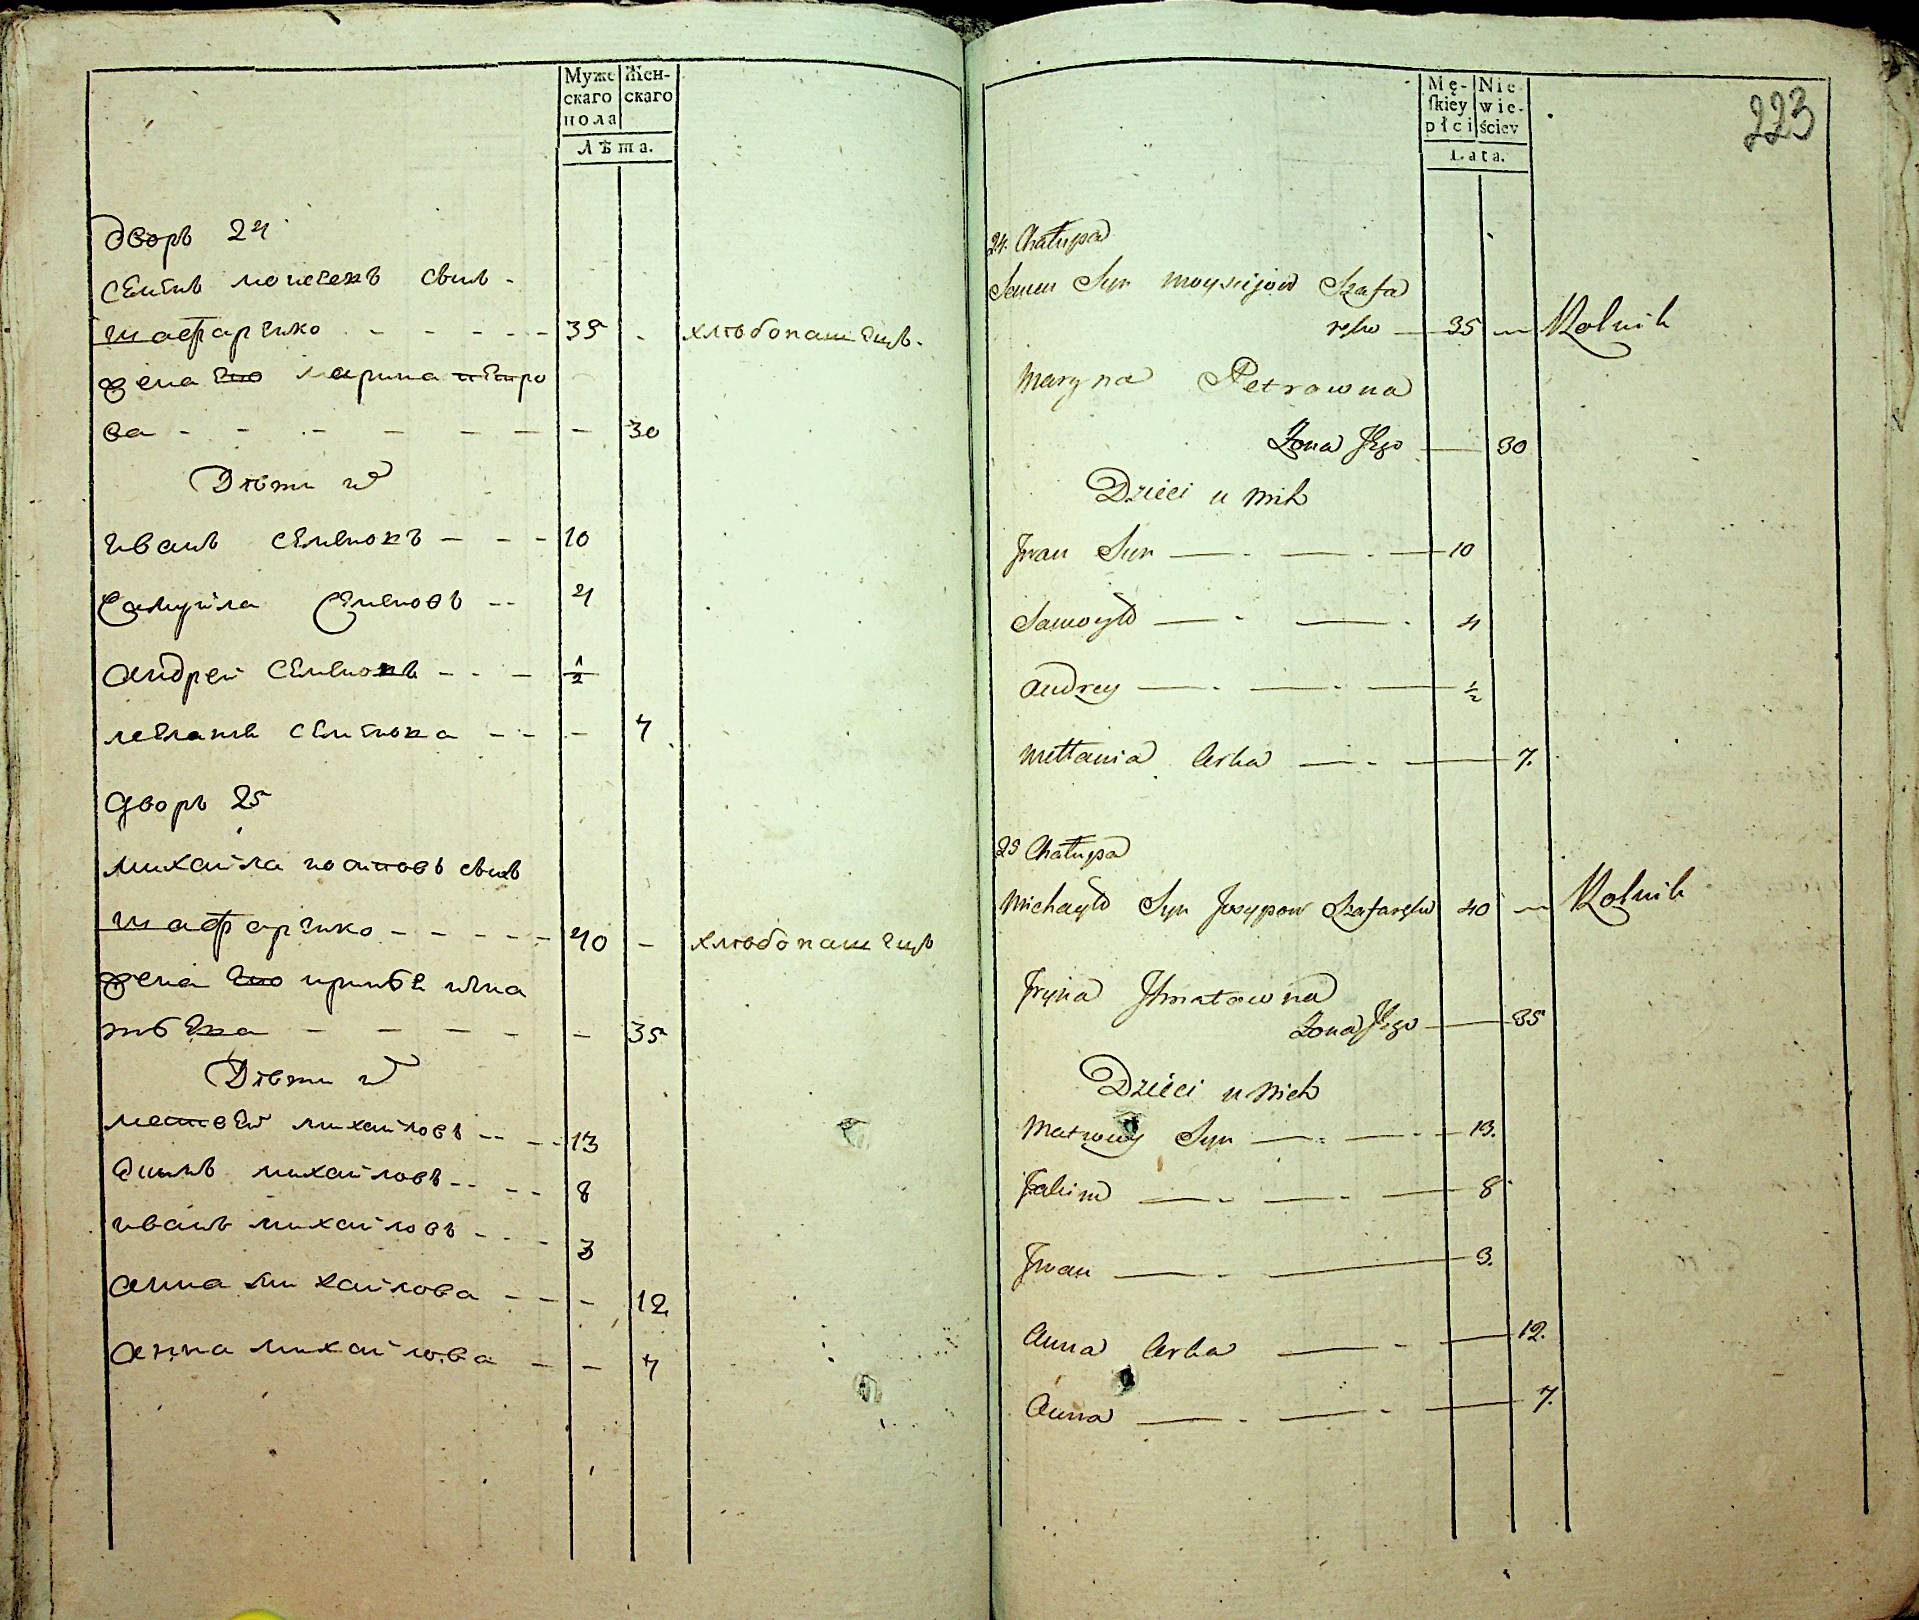 Муже
скаго
пола
Жен-
скаго
Лѣта.
дворъ 24
Семенъ моисеевъ сынъ
шафаренко - - - - - 35 - хлѣбопашецъ.
жена его марина петро
ва - - - - - - - 30
Дѣти их
иванъ семеновъ - - - 10
Самуйла Семеновъ -- 4
андрей семеновъ - - - 1/2
меланя семенова - - - 7
дворъ 25
михайла посиповъ сынъ
шафаренко - - - - - 40 - хлѣбопашецъ
жена его
- - - - - - 35
Дѣти их
матвей михайловъ -- -- 13
якимъ михайловъ -- -- 8
иванъ михайловъ - - - 3
анна михайлова - - - 12
анна михайлова - - 7
Mę-
skiey
płci
Nie
wie-
ściey
Lata.
223
24. Chałupa
Semen Syn Moysijow Szafa
ręko — 35 — Rolnik
Maryna Petrowna
Żona Jego — 30
Dzieci u nich
Jwan Syn — . — . — 10
Samoyło — . — . 4
Andrey — . — . — 1/2
Mełłania Corka — . — 7.
25 Chałupa
Michayło Syn Josypow Szafaręko 40 — Rolnik
Jryna Jhnatowna
Żona Jego — 35
Dzieci u nich
Matwiey Syn — . — . — 13.
Jakim — . — . — 8
Jwan — . — 3.
Anna Corka — . — 12.
Anna — . — . — 7.